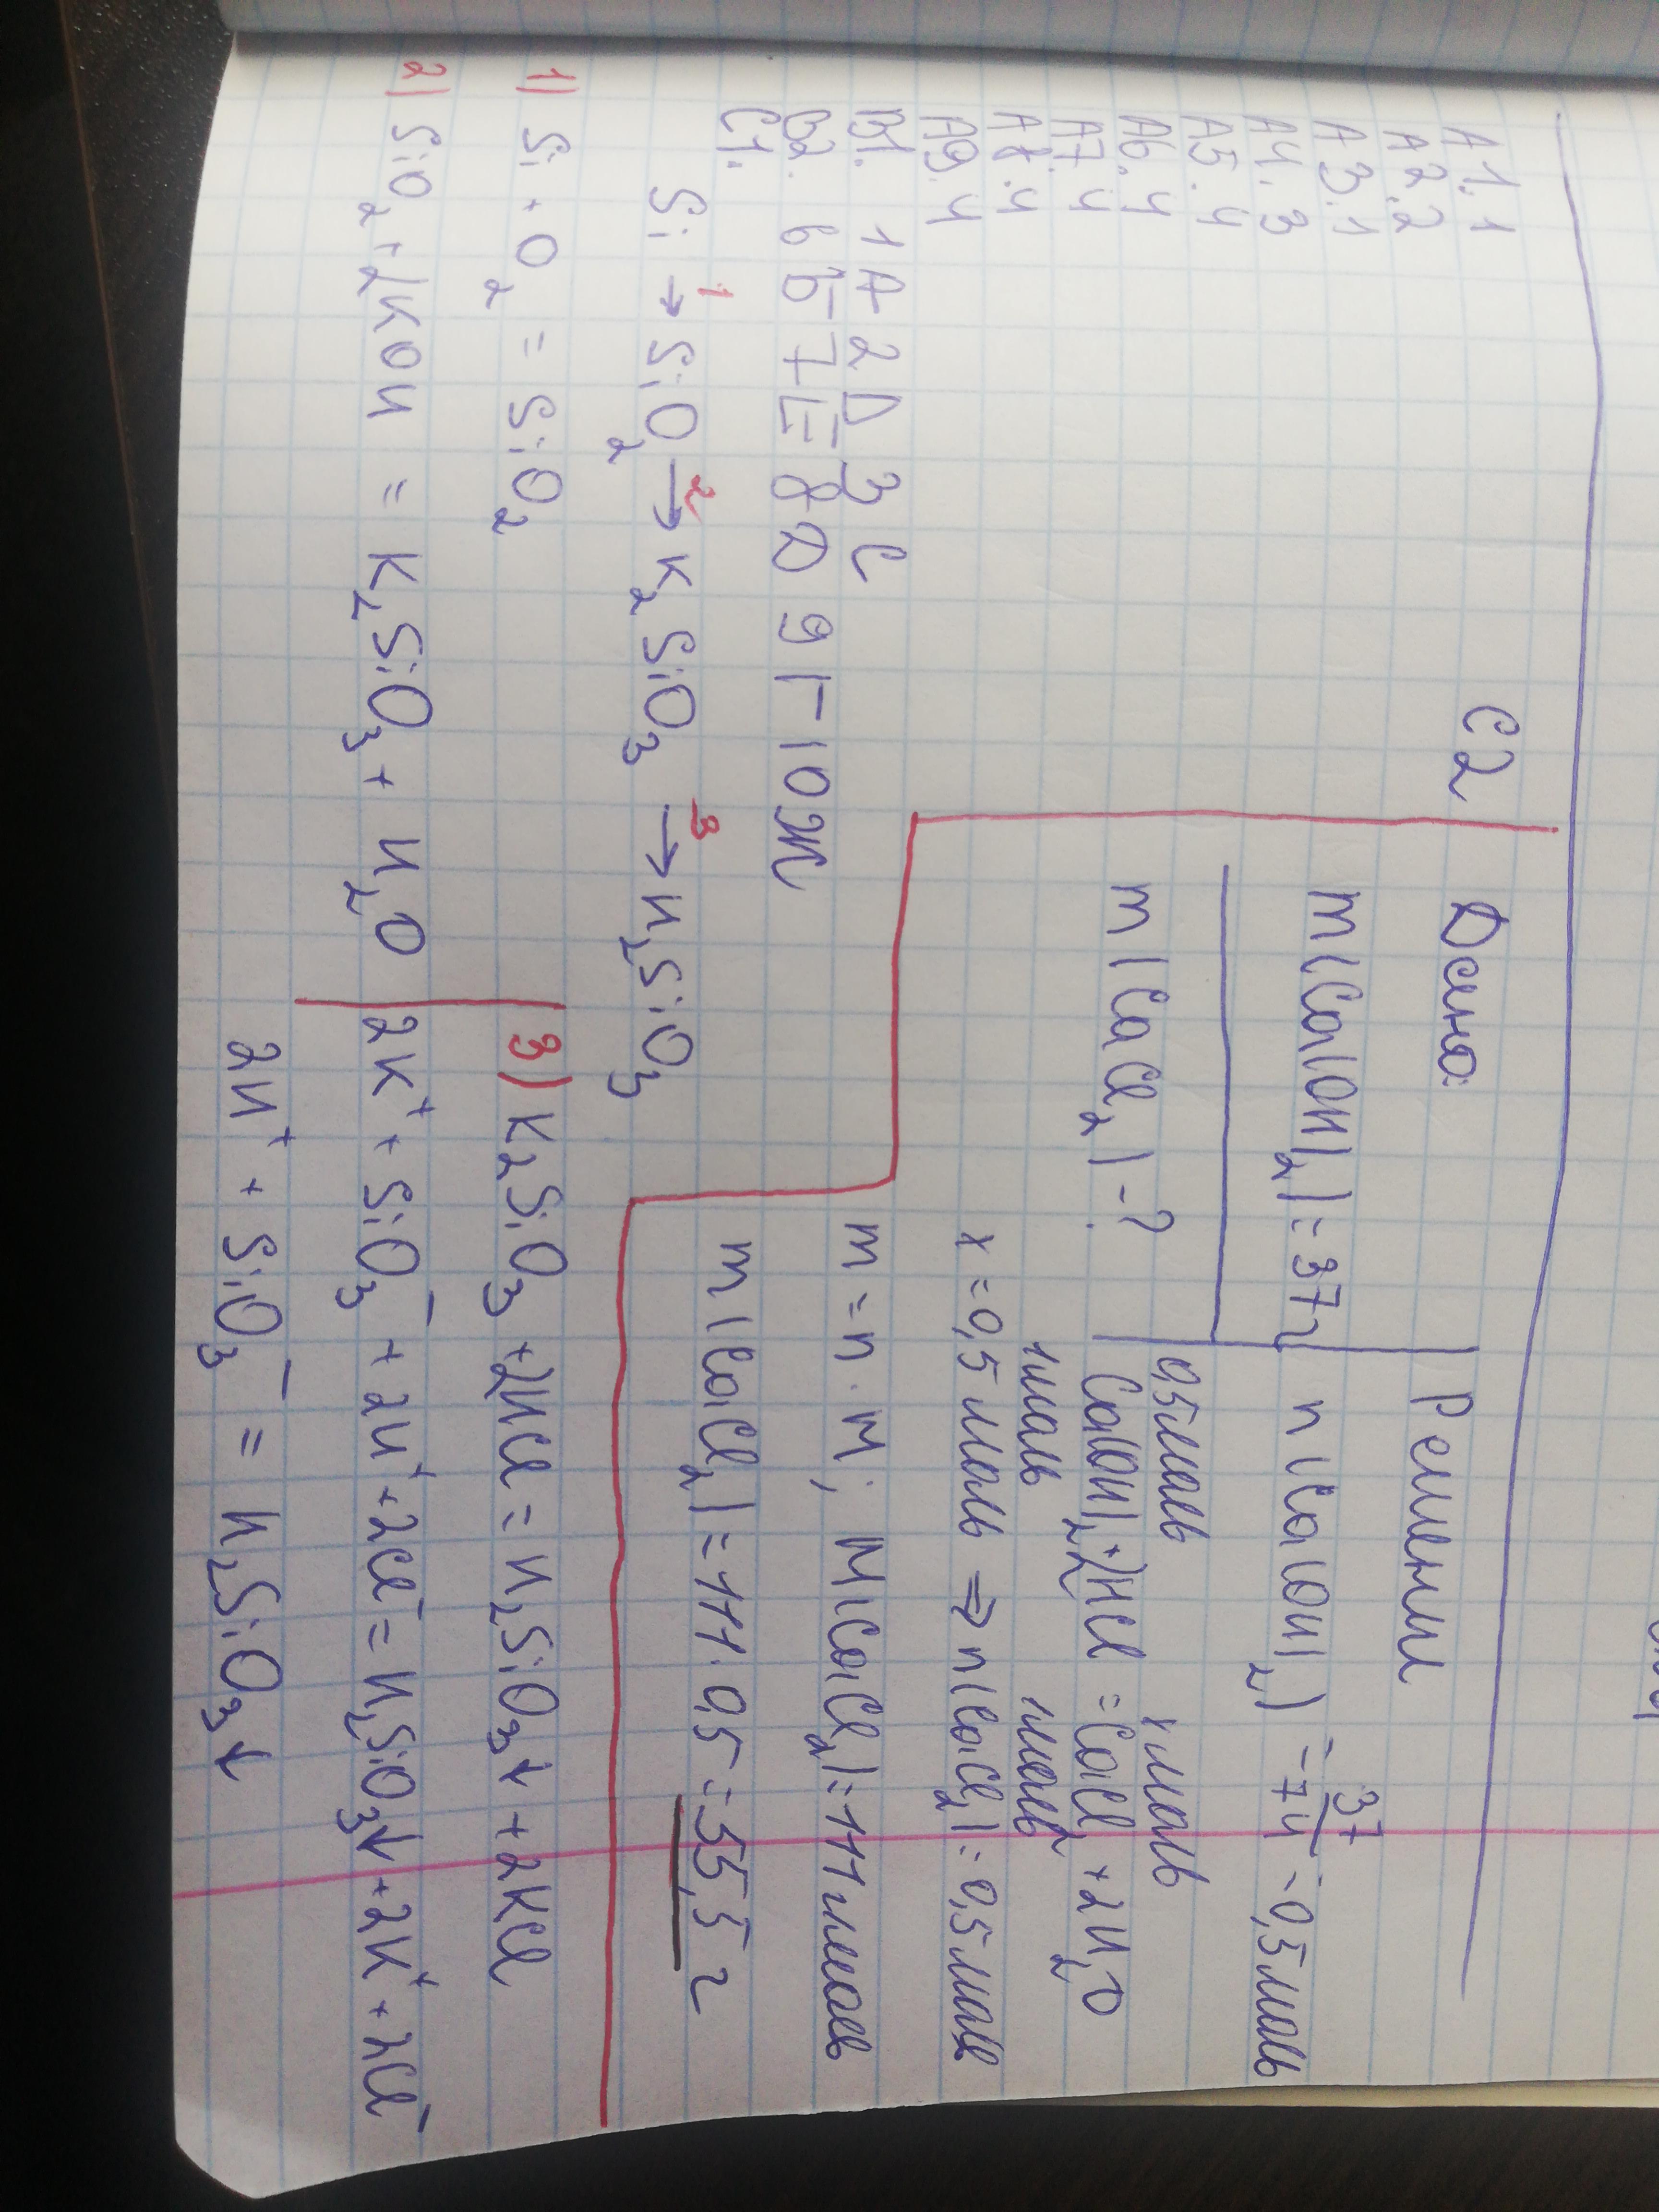 А1.1
А2.2
А3.1
А4.3
А5.4
А6.4
А7.4
А8.4
А9.4
В1. 1А 2Д 3С
В2. 6Б 7Е 8Д 9Г 10Ж
С1.
Si →¹ SiO₂ →² K₂SiO₃ →³ H₂SiO₃
1) Si + O₂ = SiO₂
2) SiO₂ + 2KOH = K₂SiO₃ + H₂O
3) K₂SiO₃ + 2HCl = H₂SiO₃↓ + 2KCl
2K⁺ + SiO₃⁻ + 2H⁺ + 2Cl⁻ = H₂SiO₃↓ + 2K⁺ + 2Cl⁻
2H⁺ + SiO₃⁻ = H₂SiO₃↓
С2
Дано:
m(Ca(OH)₂) = 37г
m(CaCl₂) - ?
n(Ca(OH)₂) = 37/74 = 0,5моль
0,5моль x моль
Ca(OH)₂ + 2HCl = CaCl₂ + 2H₂O
1моль 1моль
x = 0,5 моль ⇒ n(CaCl₂) = 0,5моль
m = n · M; M(CaCl₂) = 111г/моль
m(CaCl₂) = 111 · 0,5 = 55,5 г